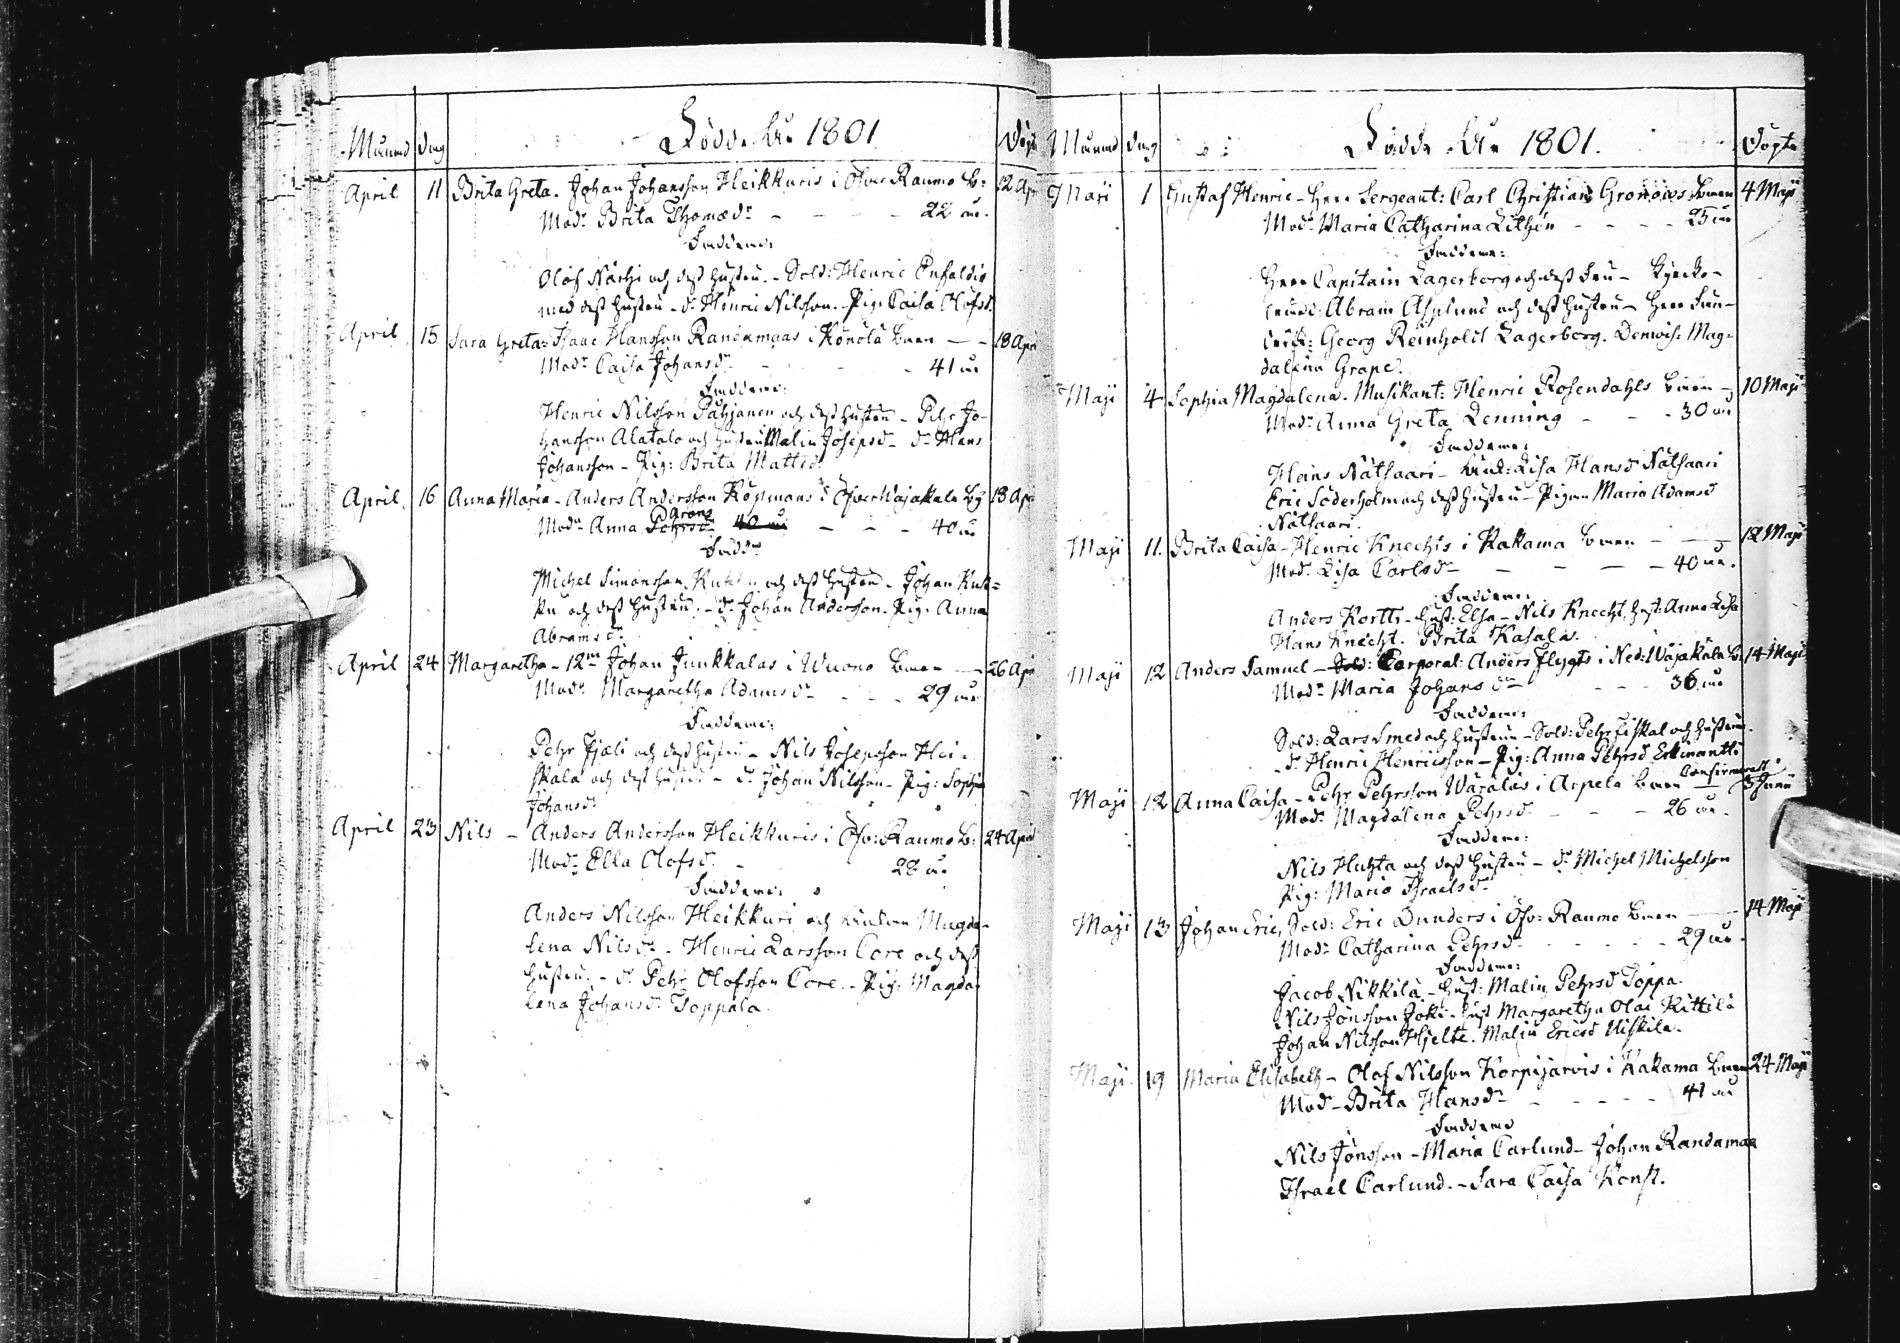 Månad Dag Födde År 1801 Döpt
April 11 Brita Greta. Johan Johansson Heikkuris i Öfver Raumo B: 12 Apr
Modr Brita Thomædr - - - - 22 år.
Faddrar:
Olof Närhi och dess hustru. - Sold: Henric Enfaldig
med dess hustru - dr. Henric Nilsson. - Pig: Caisa Olofsd.
April 15 Sara Greta: Isaac Hansson Randamaas i Könölä Barn - - 18 Apr
Modr Caisa Johansdr - - - - 41 år
Faddrar:
Henric Nilsson och dess hustru - Pehr Jo-
hansson Alatalo och hustru Malin Josepsd - dr. Hans
Johansson - Pig: Brita Mattsd.
April 16 Anna Maria - Anders Andersson Köpmans i Öfver Wojakala By 18 Apr
Modr Anna Pehrsdr Arons 40 år - - - 40 år
Faddr
Michel Simonsson Kukko och dess hustru - Johan Kuk-
ko och dess hustru. - dr. Johan Andersson. Pig: Anna
Abramsdr.
April 24 Margaretha - 12m Johan Junkkalas i Wuono Barn - 26 Apr
Modr Margaretha Adamsdr - - - 29 år
Faddrar:
Pehr Fjæli och dess hustru - Nils Josepsson Hei-
skala och dess hustru - dr. Johan Nilsson - Pig: Sophia
Johansd:
April 23 Nils - Anders Andersson Heikkuris i Öfv: Raumo B: 24 April
Modr Ella Olofsd. - 28 år
Faddrar:
Anders Nilsson Heikkuri och Magda-
lena Nilsdr - Henric Larsson Core och dess
hustru. - dr. Pehr Olofsson Core. - Pig: Magda-
lena Johansdr Toppala.
Månad Dag Födde År 1801. Döpte
Maji 1 Gustaf Henric - Herr Sergeant: Carl Christian Gronows Barn 4 Maji
Modr Maria Catharina Lithén - - - - 25 år
Faddrar:
Herr Capitain Lagerborg och dess Fru - Kyrko-
Abram Asplund och dess hustru - Herr Fän-
Georg Reinhold Lagerborg. Demois: Mag-
dalena Grape.
Maji 4 Sophia Magdalena - Musikant: Henric Rosendahls Barn - 10 Maji
Modr Anna Greta Lenning - - - 30 år
Faddrar:
Hans Nätsaari - Lisa Hansd Nätsaari
Eric Söderholm och dess hustru - Pigan Maria Adamsd
Nätsaari.
Maji 11. Brita Caisa - Henric Knechts i Kakama Barn - - - 12 Maji
Modr Lisa Carlsdr - - - - 40 år.
Faddrar:
Anders Kortti - hust: Elsa - Nils Knecht, hust: Anna Lisa
Hans Knecht. Brita Kasala.
Maji 12 Anders Samuel - Sold: Corporal: Anders Flygts i Ned: Wojakala B: 14 Maji
Modr Maria Johansdr - - - - 36 år
Faddrar:
Sold: Lars Smed och hustru - Sold: Pehr Fiskal och hustru
- dr. Henric Henricsson - Pig: Anna Pehrsd Erkinantti
Maji 12 Anna Caisa - Pehr Pehrsson Waralas i Arpela Barn 3 Junii
Modr Magdalena Pehrsd - - - 26 år.
Faddrar:
Nils Huhta och dess hustru - dr. Michel Michelsson
Pig: Maria Israelsdr
Maji 13 Johan Eric, Sold: Eric Dunders i Öfv: Raumo Barn - 14 Maji
Modr Catharina Pehrsd - - - - 29 år.
Faddrar:
Jacob Nikkilä - hust: Malin Pehrsd Toppa.
Nils Jönsson Joki - hust Margaretha Olai Kittilä
Johan Nilsson Hjelte. Malin Ericsd Niskila.
Maji 19 Maria Elisabeth - Olof Nilsson Korpijärvis i Kakama Barn 24 Maji
Modr - Brita Hansdr - - - - - 41 år
Faddrar
Nils Jönsson - Maria Carlund - Johan Randamaa
Israel Carlund. - Sara Caisa Konst.